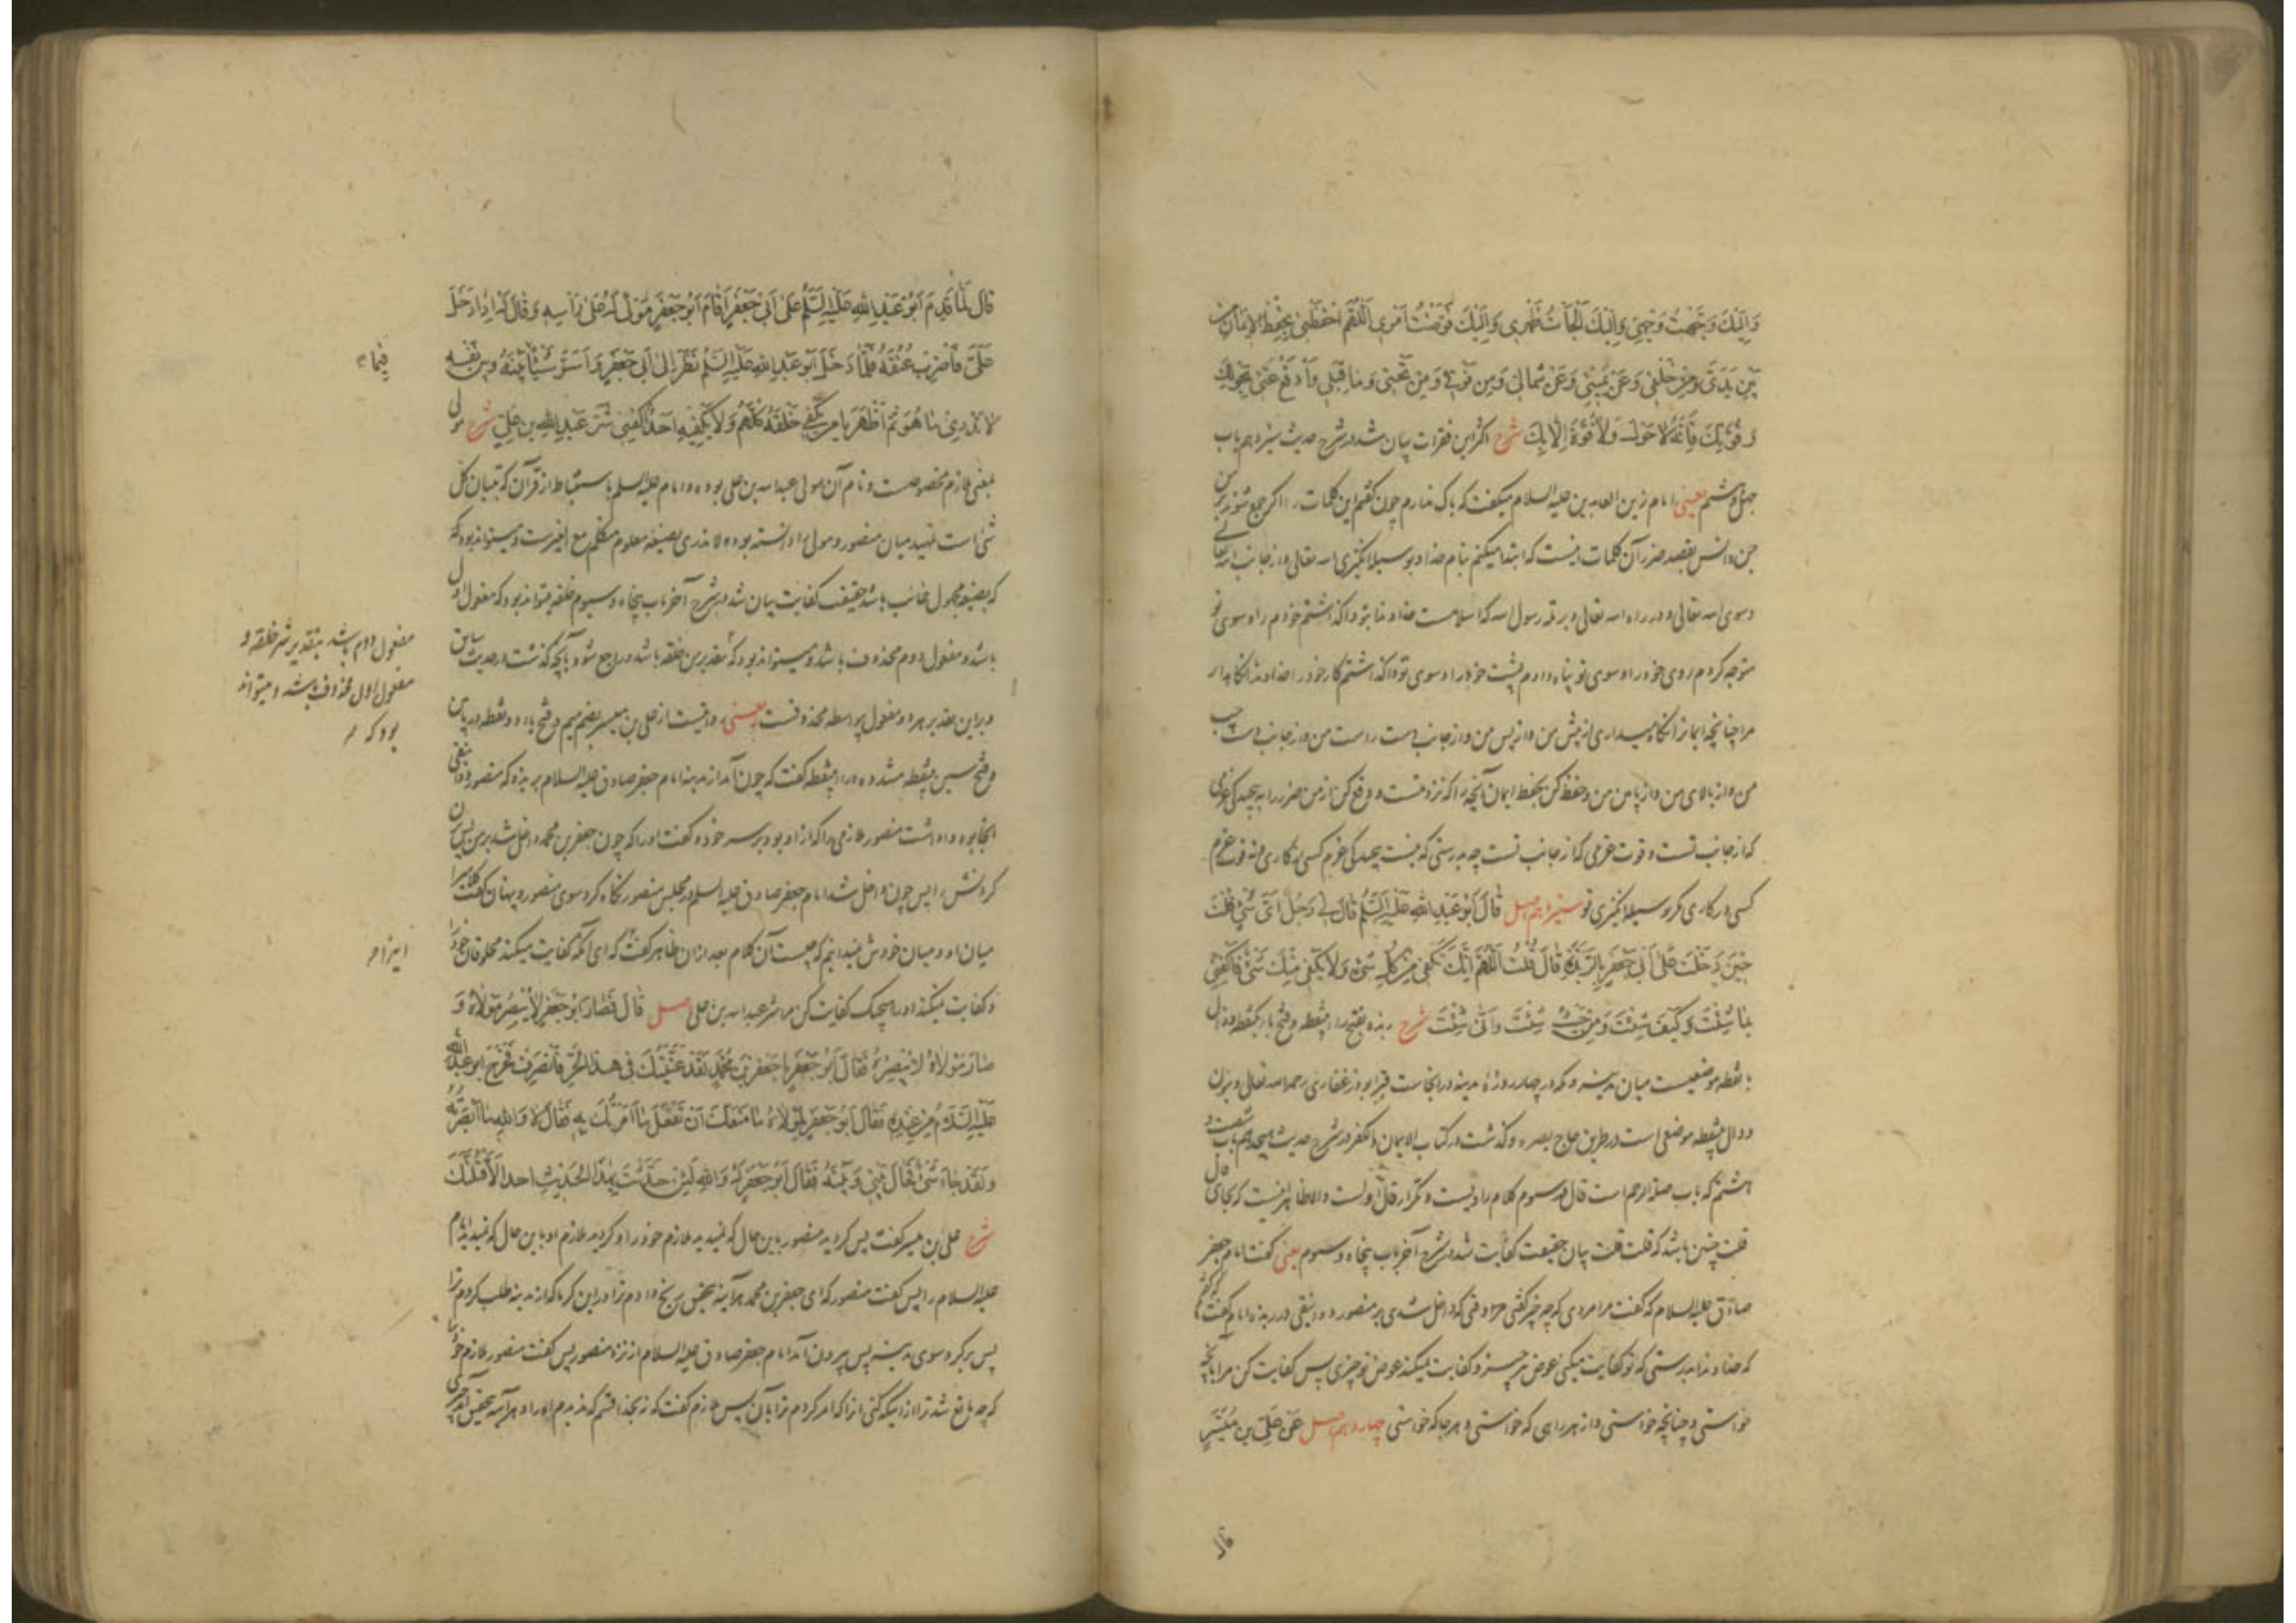 وَإِلَيْكَ وَجَّهْتُ وَجْهِي وَإِلَيْكَ أَلْجَأْتُ ظَهْرِي وَإِلَيْكَ فَوَّضْتُ أَمْرِي اَللّٰهُمَّ احْفَظْنِي بِحِفْظِ الْإِيمَانِ مِنْ
بَيْنِ يَدَيَّ وَمِنْ خَلْفِي وَعَنْ يَمِينِي وَعَنْ شِمَالِي وَمِنْ فَوْقِي وَمِنْ تَحْتِي وَمَا قِبَلِي وَادْفَعْ عَنِّي بِحَوْلِكَ
وَقُوَّتِكَ فَإِنَّهُ لَا حَوْلَ وَلَا قُوَّةَ إِلَّا بِكَ شرح اکثر این فقرات بیان شد در شرح حدیث سیزدهم باب
چهل و هشتم یعنی امام زین العابدین علیه السلام میگفت که باک ندارم چون گفتم این کلمات را اگر جمع شوند بر من
جن و انس بقصد ضرر آن کلمات اینست که ابتدا میکنم بنام خدا و بوسیلا انگیزی الله تعالی و از جانب الله تعالی
وسوی الله تعالی و در راه الله تعالی و بر ملة رسول الله که اسلامست خداوندا بتو واگذاشتم خودم را و سوی تو
متوجه کردم روی خود را و سوی تو پناه دادم پشت خود را و سوی تو واگذاشتم کار خود را خداوندا نگاه دار
مرا چنانچه ایمانرا نگاه میداری از پیش من و از پس من و از جانب راست من و از جانب چپ
من و از بالای من و از پایین من و حفظ کن بحفظ ایمان آنچه را که نزد منست و دفع کن از من ضرر را به پیچیدگی عزمی
که از جانب تست و قوت عزمی که از جانب تست چه بدرستی که نیست پیچیدگی عزم کسی در کاری و نه قوت عزم
کسی در کاری مگر بوسیلا انگیزی تو سیزدهم اصل قَالَ أَبُو عَبْدِ اللهِ عَلَيْهِ السَّلَمُ قَالَ لِي رَجُلٌ أَيَّ شَيْءٍ قُلْتَ
حِينَ دَخَلْتَ عَلَى أَبِي جَعْفَرٍ بِالرَّبَذَةِ قَالَ قُلْتُ اَللّٰهُمَّ إِنَّكَ تَكْفِي مِنْ كُلِّ شَيْءٍ وَلَا يَكْفِي مِنْكَ شَيْءٌ فَاكْفِنِي
بِمَا شِئْتَ وَكَيْفَ شِئْتَ وَمِنْ حَيْثُ شِئْتَ وَأَنَّى شِئْتَ شرح ربذه بفتح راء بینقطه و فتح باء یکنقطه و ذال
با نقطه موضعیست میان مدینه و مکه در چهار روزهٔ مدینه در انجاست قبر ابوذر غفاری رحمه الله تعالی و بزن
و دال بینقطه موضعی است در طریق حاج بصره و گذشت در کتاب الایمان و الکفر در شرح حدیث هیجدهم باب شصت و
هشتم که باب صلة الرحم است قال در سوم کلام راویست و تکرار قال اولست و الا ظاهر اینست که بجای
قلت چنین باشد که قلت قلت بیان حقیقت کفایت شد در شرح آخر باب پنجاه و سیوم یعنی گفت امام جعفر
صادق علیه السلام که گفت مرا مردی که چه چیز گفتی در وقتی که داخل شدی بر منصور دوانیقی در ربذه امام گفت که گفتم
که خداوندا بدرستی که تو کفایت میکنی عوض هر چیز و کفایت نمیکند عوض تو چیزی پس کفایت کن مرا بآنچه
خواستی و چنانچه خواستی و از هر راهی که خواستی و هر جا که خواستی چهاردهم اصل عَنْ عَلِيِّ بْنِ مُيَسِّرٍ
قال
قَالَ لَمَّا قَدِمَ أَبُو عَبْدِ اللهِ عَلَيْهِ السَّلَمُ عَلَى أَبِي جَعْفَرٍ أَقَامَ أَبُو جَعْفَرٍ مَوْلًى لَهُ عَلَى رَأْسِهِ وَقَالَ لَهُ إِذَا دَخَلَ
عَلَيَّ فَاضْرِبْ عُنُقَهُ فَلَمَّا دَخَلَ أَبُو عَبْدِ اللهِ عَلَيْهِ السَّلَمُ نَظَرَ إِلَى أَبِي جَعْفَرٍ وَأَسَرَّ شَيْئًا بَيْنَهُ وَبَيْنَ نَفْسِهِ
فیما
لَا يُدْرَى مَا هُوَ ثُمَّ أَظْهَرَ يَا مَنْ يَكْفِي خَلْقَهُ كُلَّهُمْ وَلَا يَكْفِيهِ أَحَدٌ اكْفِنِي شَرَّ عَبْدِ اللهِ بْنِ عَلِيٍّ شرح مولی
بمعنی ملازم مخصوصست و نام آن مولی عبدالله بن علی بوده و امام علیه السلم باستنباط از قرآن که تبیان کل
شئ است تمهید میان منصور و مولی را دانسته بوده لا ندری بصیغهٔ معلوم متکلم مع الغیرست و میتواند بود که
که بصیغهٔ مجهول غائب باشد حقیقت کفایت بیان شد در شرح آخر باب پنجاه و سیوم خلقه میتواند بود که مفعول اول
باشد و مفعول دوم محذوف باشد و میتواند بود که بتقدیر من خلقه باشد و راجع شود بآنچه گذشت در حدیث سابق
مفعول دوم باشد بتقدیر شر خلقه و
مفعول اول محذوف باشد و میتواند
بود که
و براین تقدیر هر دو مفعول بواسطه محذوفست یعنی روایتست از علی بن میسر بضم میم و فتح یاء دو نقطه در پایین
و فتح سین بینقطه مشدده و راء بینقطه گفت که چون آمد از مدینه امام جعفر صادق علیه السلام بربذه که منصور دوانیقی
انجا بود واداشت منصور ملازمی را که ازاد او بود بر سر خود و گفت او را که چون جعفر بن محمد داخل شد بر من پس بزن
گردنش را پس چون داخل شد امام جعفر صادق علیه السلم در مجلس منصور نگاه کرد سوی منصور و پنهان گفت کلامی را
میان او و میان خودش نمیدانیم که چیست آن کلام بعد ازان ظاهر گفت که ای آنکه کفایت میکند مخلوقان خود را
و کفایت نمیکند او را هیچیک کفایت کن مرا شر عبدالله بن علی اصل قَالَ فَصَارَ أَبُو جَعْفَرٍ لَا يُبْصِرُ مَوْلَاهُ وَ
صَارَ مَوْلَاهُ لَا يُبْصِرُهُ فَقَالَ أَبُو جَعْفَرٍ يَا جَعْفَرَ بْنَ مُحَمَّدٍ لَقَدْ عَنَّيْتُكَ فِي هٰذَا الْحَرِّ فَانْصَرِفْ فَخَرَجَ أَبُو عَبْدِ اللهِ
عَلَيْهِ السَّلَامُ مِنْ عِنْدِهِ فَقَالَ أَبُو جَعْفَرٍ لِمَوْلَاهُ مَا مَنَعَكَ أَنْ تَفْعَلَ مَا أَمَرْتُكَ بِهِ فَقَالَ لَا وَاللهِ مَا أَبْصَرْتُهُ
وَلَقَدْ جَاءَ شَيْءٌ فَحَالَ بَيْنِي وَبَيْنَهُ فَقَالَ أَبُو جَعْفَرٍ لَهُ وَاللهِ لَئِنْ حَدَّثْتَ بِهٰذَا الْحَدِيثِ أَحَدًا لَأَقْتُلَنَّكَ
شرح علی بن میسر گفت پس گردید منصور باین حال که نمیدید ملازم خود را و گردید ملازم او باین حال که نمیدید امام
علیه السلام را پس گفت منصور که ای جعفر بن محمد هرآینه بتحقیق رنج دادم ترا در این گرما که از مدینه طلب کردم ترا
پس برگرد سوی مدینه پس بیرون آمد امام جعفر صادق علیه السلام از نزد منصور پس گفت منصور ملازم خود را
که چه مانع شد ترا از اینکه کنی انرا که امر کردم ترا بآن پس ملازم گفت که نه بخدا قسم که ندیدم او را و هرآینه بتحقیق آمد چیزی